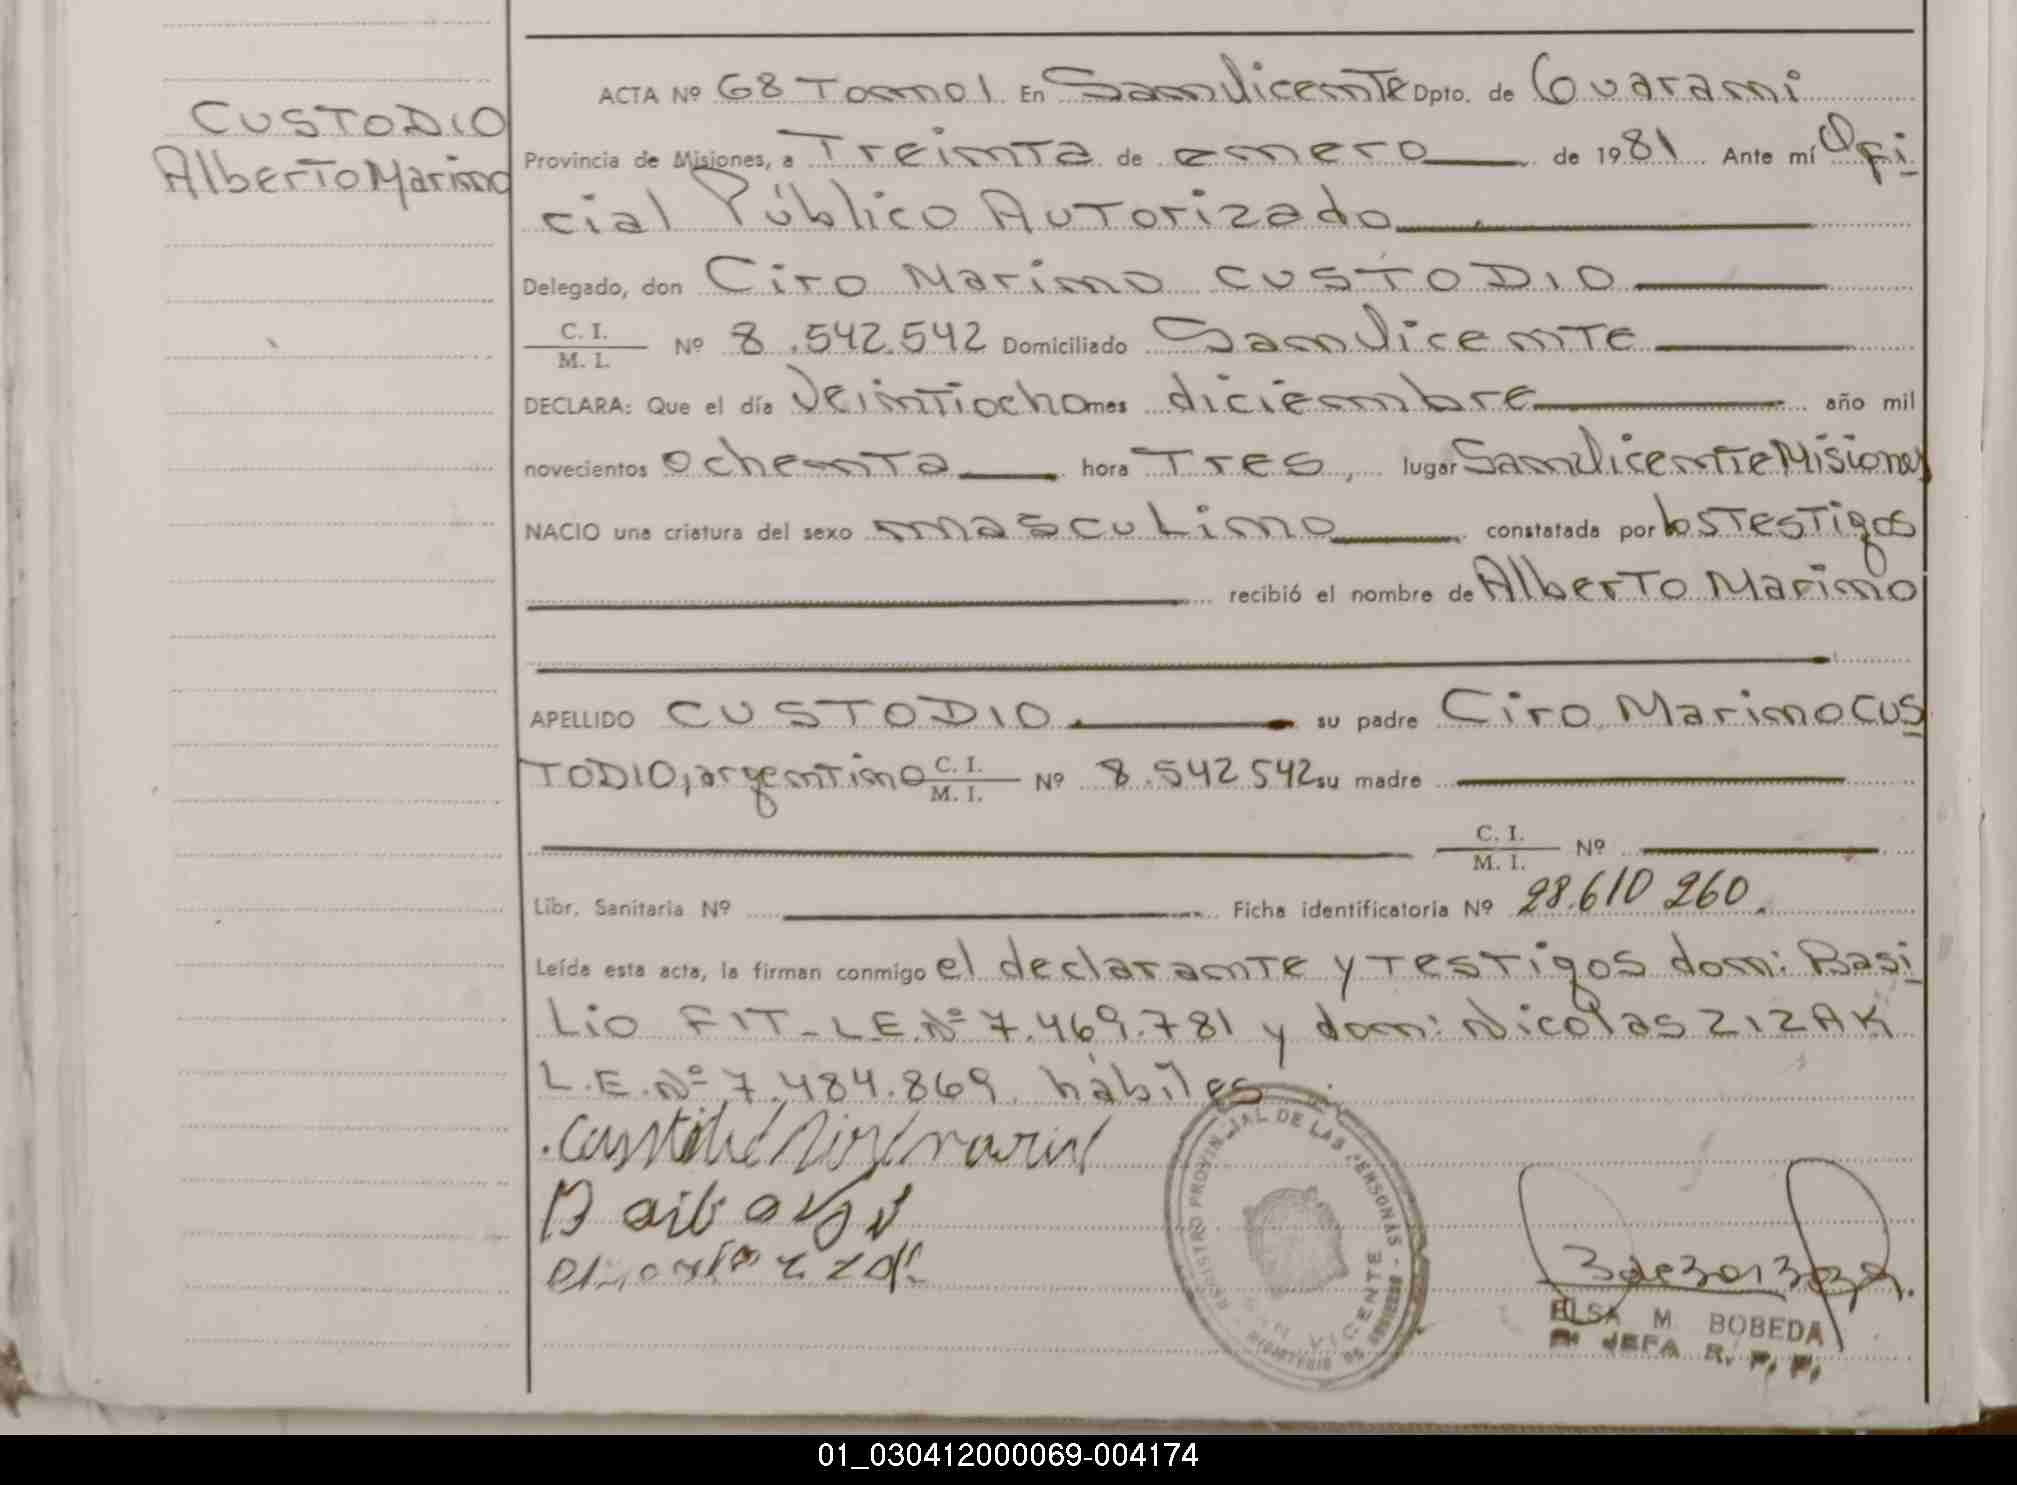 CUSTODIO
Alberto Marino
ACTA Nº 68 Tomo 1 En San Vicente Dpto. de Guarani
Provincia de Misiones, a Treinta de enero de 1981 Ante mí Ofi
cial Público Autorizado
Delegado, don Ciro Marino CUSTODIO
C. I.
M. I. Nº 8.542.542 Domiciliado San Vicente
DECLARA: Que el día Veintiocho mes diciembre año mil
novecientos ochenta hora Tres, lugar San Vicente Misiones
NACIO una criatura del sexo masculino constatada por los Testigos
recibió el nombre de Alberto Marino
APELLIDO CUSTODIO su padre Ciro Marino CUS
TODIO, argentino C. I. M. I. Nº 8.542.542 su madre
C. I.
M. I. Nº
Libr. Sanitaria Nº Ficha identificatoria Nº 28.610 260.
Leída esta acta, la firman conmigo el declarante y Testigos don: Basi
Lio FIT-L.E.Nº 7.469.781 y don: Nicolas ZIZAK
L.E.Nº 7.484.869 hábiles
REGISTRO PROVINCIAL DE LAS PERSONAS - MINISTERIO DE GOBIERNO
VICENTE
ELSA M BOBEDA
JEFA R. P. P.
01_030412000069-004174